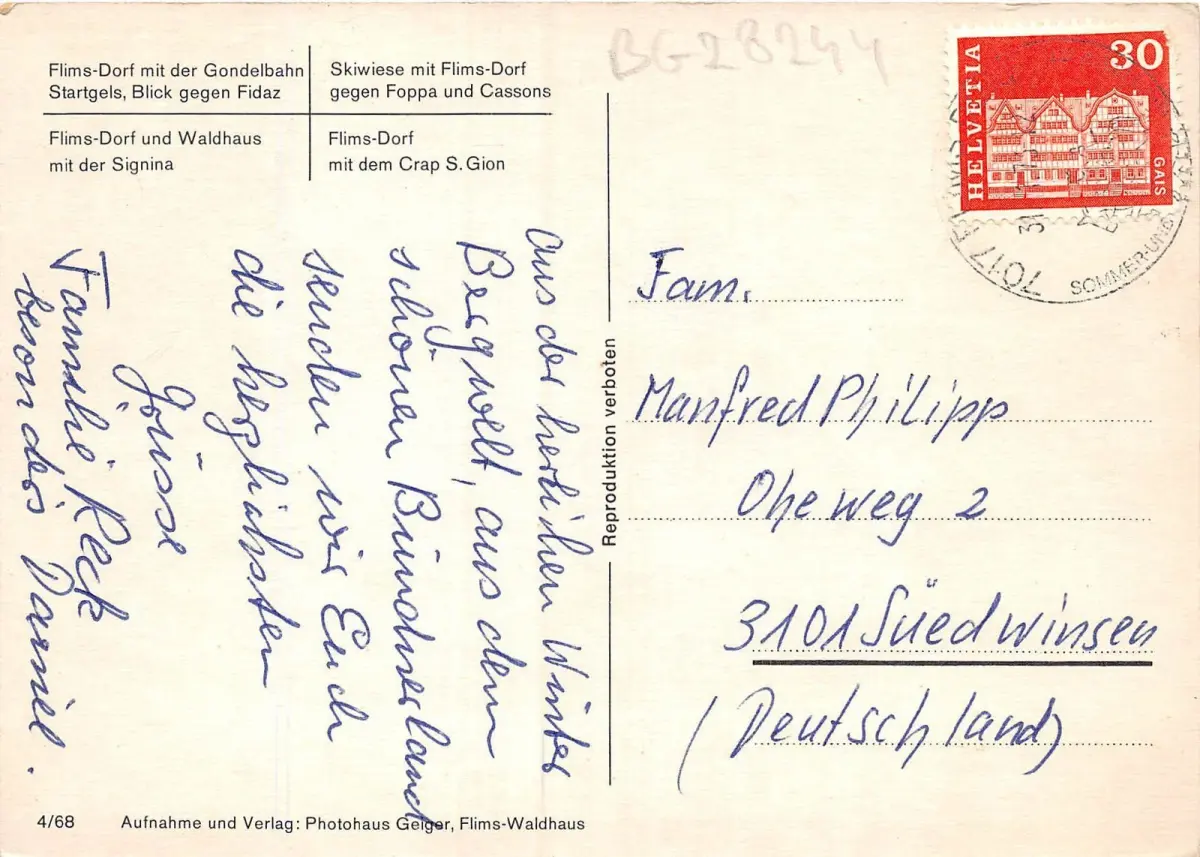 BG28244
Flims-Dorf mit der Gondelbahn
Startgels, Blick gegen Fidaz
Skiwiese mit Flims-Dorf
gegen Foppa und Cassons
Flims-Dorf und Waldhaus
mit der Signina
Flims-Dorf
mit dem Crap S. Gion
HELVETIA
30
GAIS
7017
SOMMER-UND
Aus der herlichen Winter
Bergwelt, aus dem
schönen Bündnerland
senden wir Euch
die herzlichsten
Grüsse
Familie Reck
besonders Daniel.
Reproduktion verboten
Fam.
Manfred Philipp
Oheweg 2
3101 Süedwinsen
(Deutschland)
4/68
Aufnahme und Verlag: Photohaus Geiger, Flims-Waldhaus